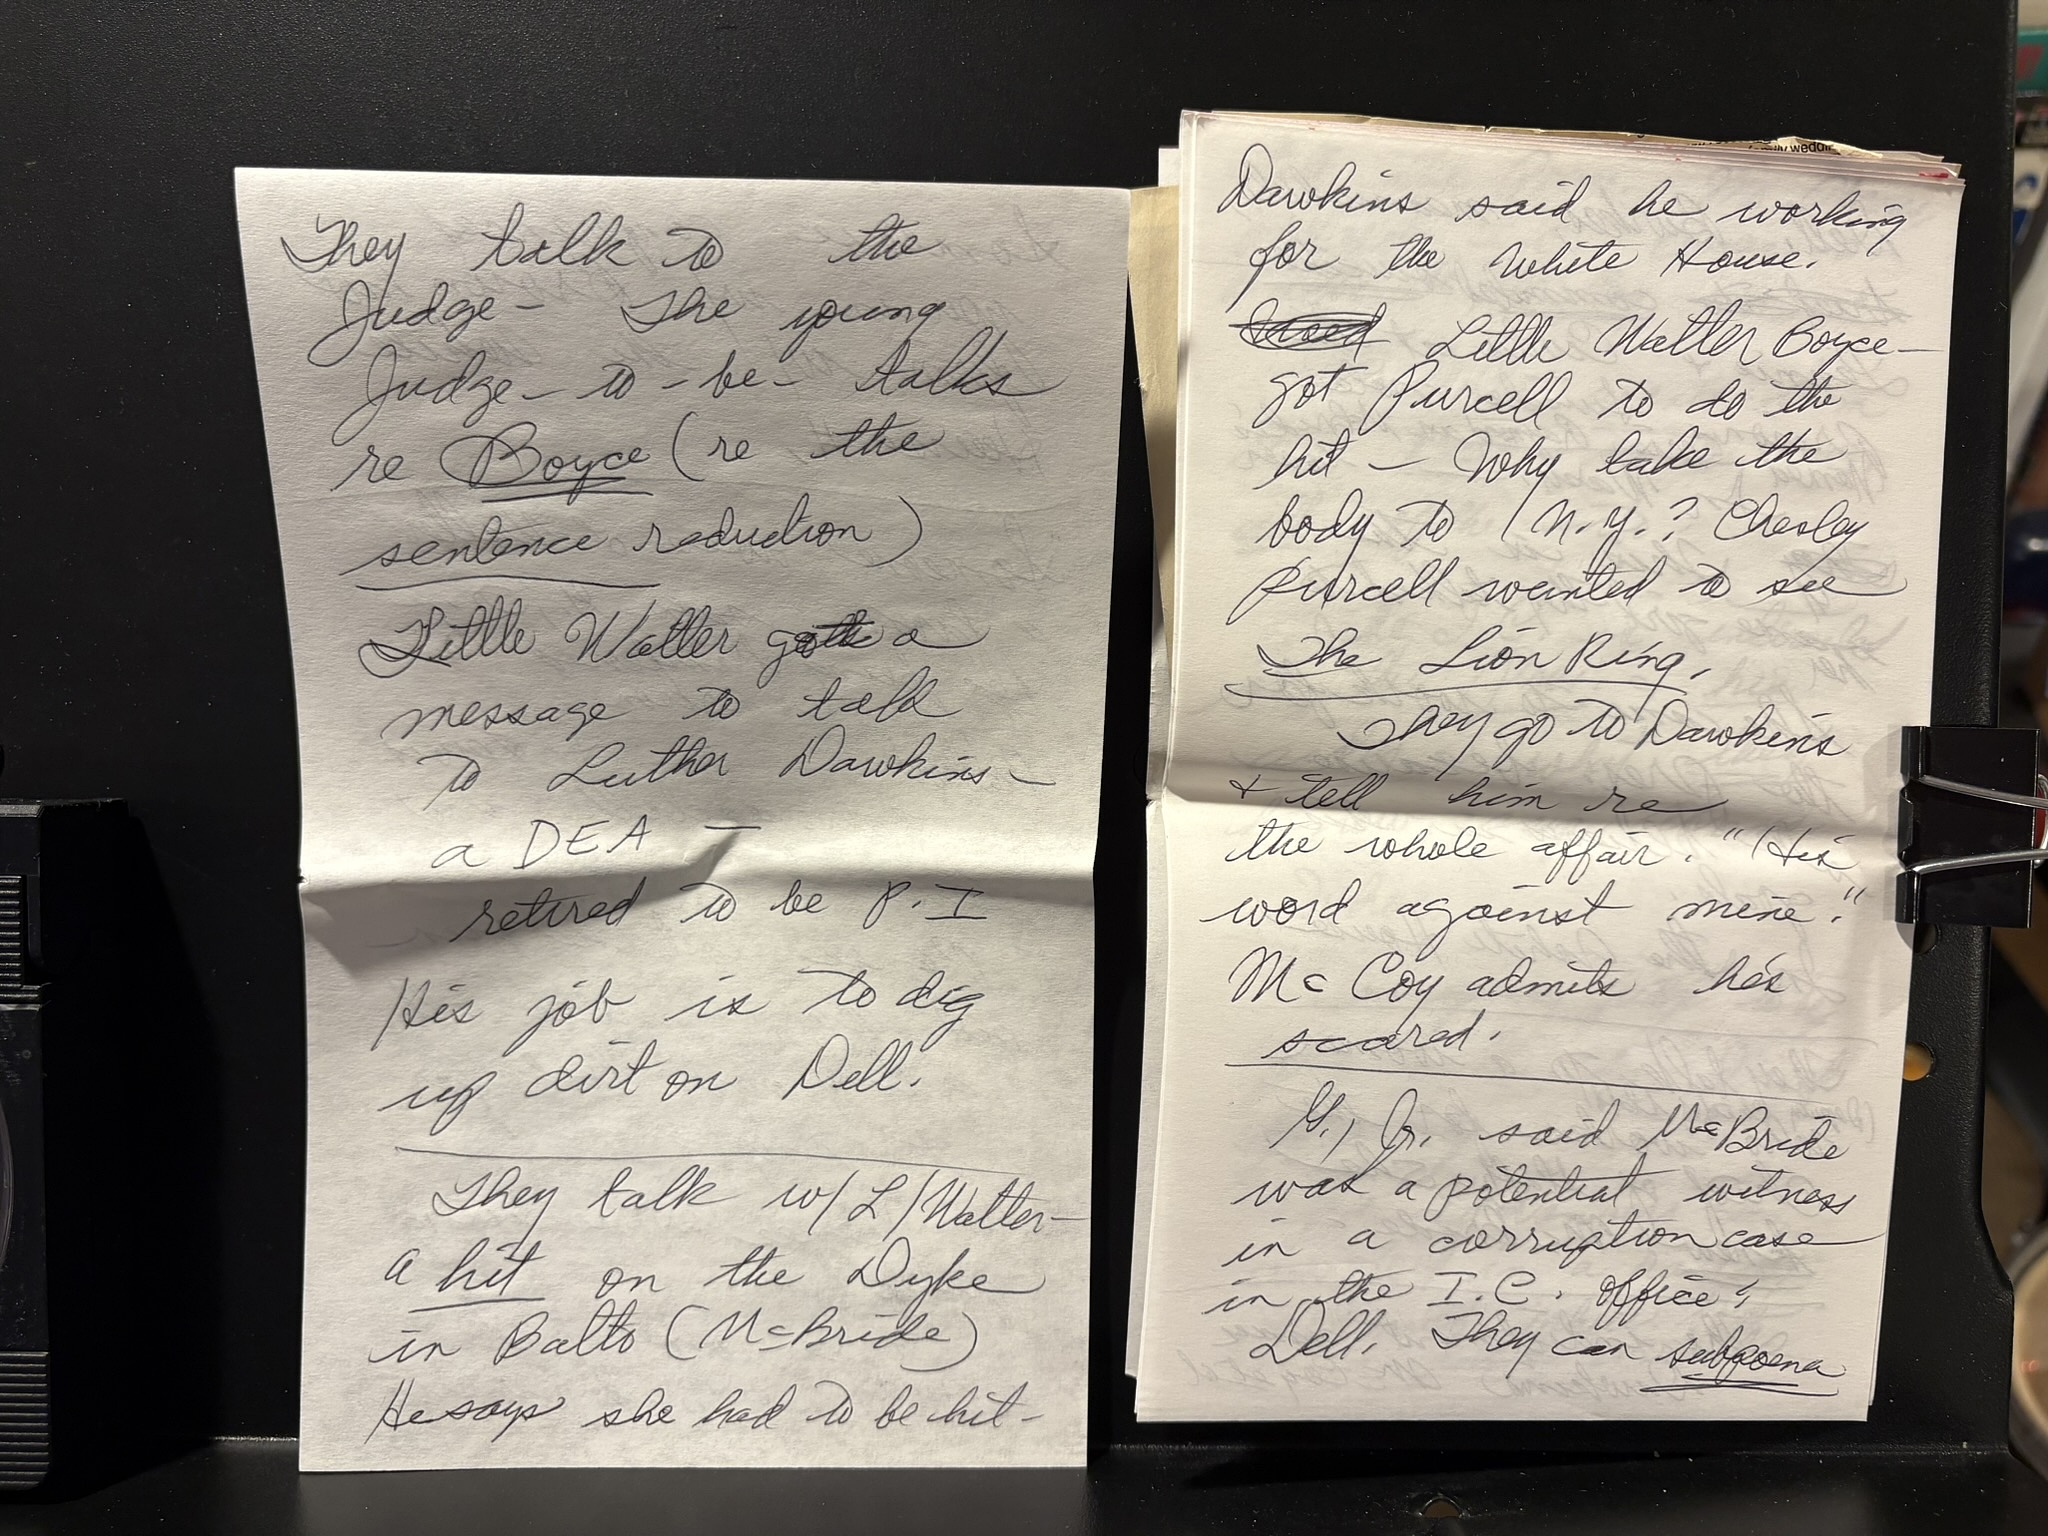 They talk to the
Judge - The young
Judge - to - be - talks
re Boyce (re the
sentence reduction)
Little Walter got a
message to talk
to Luther Dawkins -
a DEA -
retired to be P.I
His job is to dig
up dirt on Dell.
They talk w/ L/Walter -
a hit on the Dyke
in Balto (McBride)
He says she had to be hit -
family weddi
Dawkins said he working
for the White House.
Little Walter Boyce -
got Purcell to do the
hit - Why take the
body to N.Y.? Chesley
Purcell wanted to see
The Lion King.
They go to Dawkins
& tell him re
the whole affair. "His
word against mine."
McCoy admits he's
scared.
G., Jr. said McBride
was a potential witness
in a corruption case
in the I.C. office;
Dell. They can subpoena